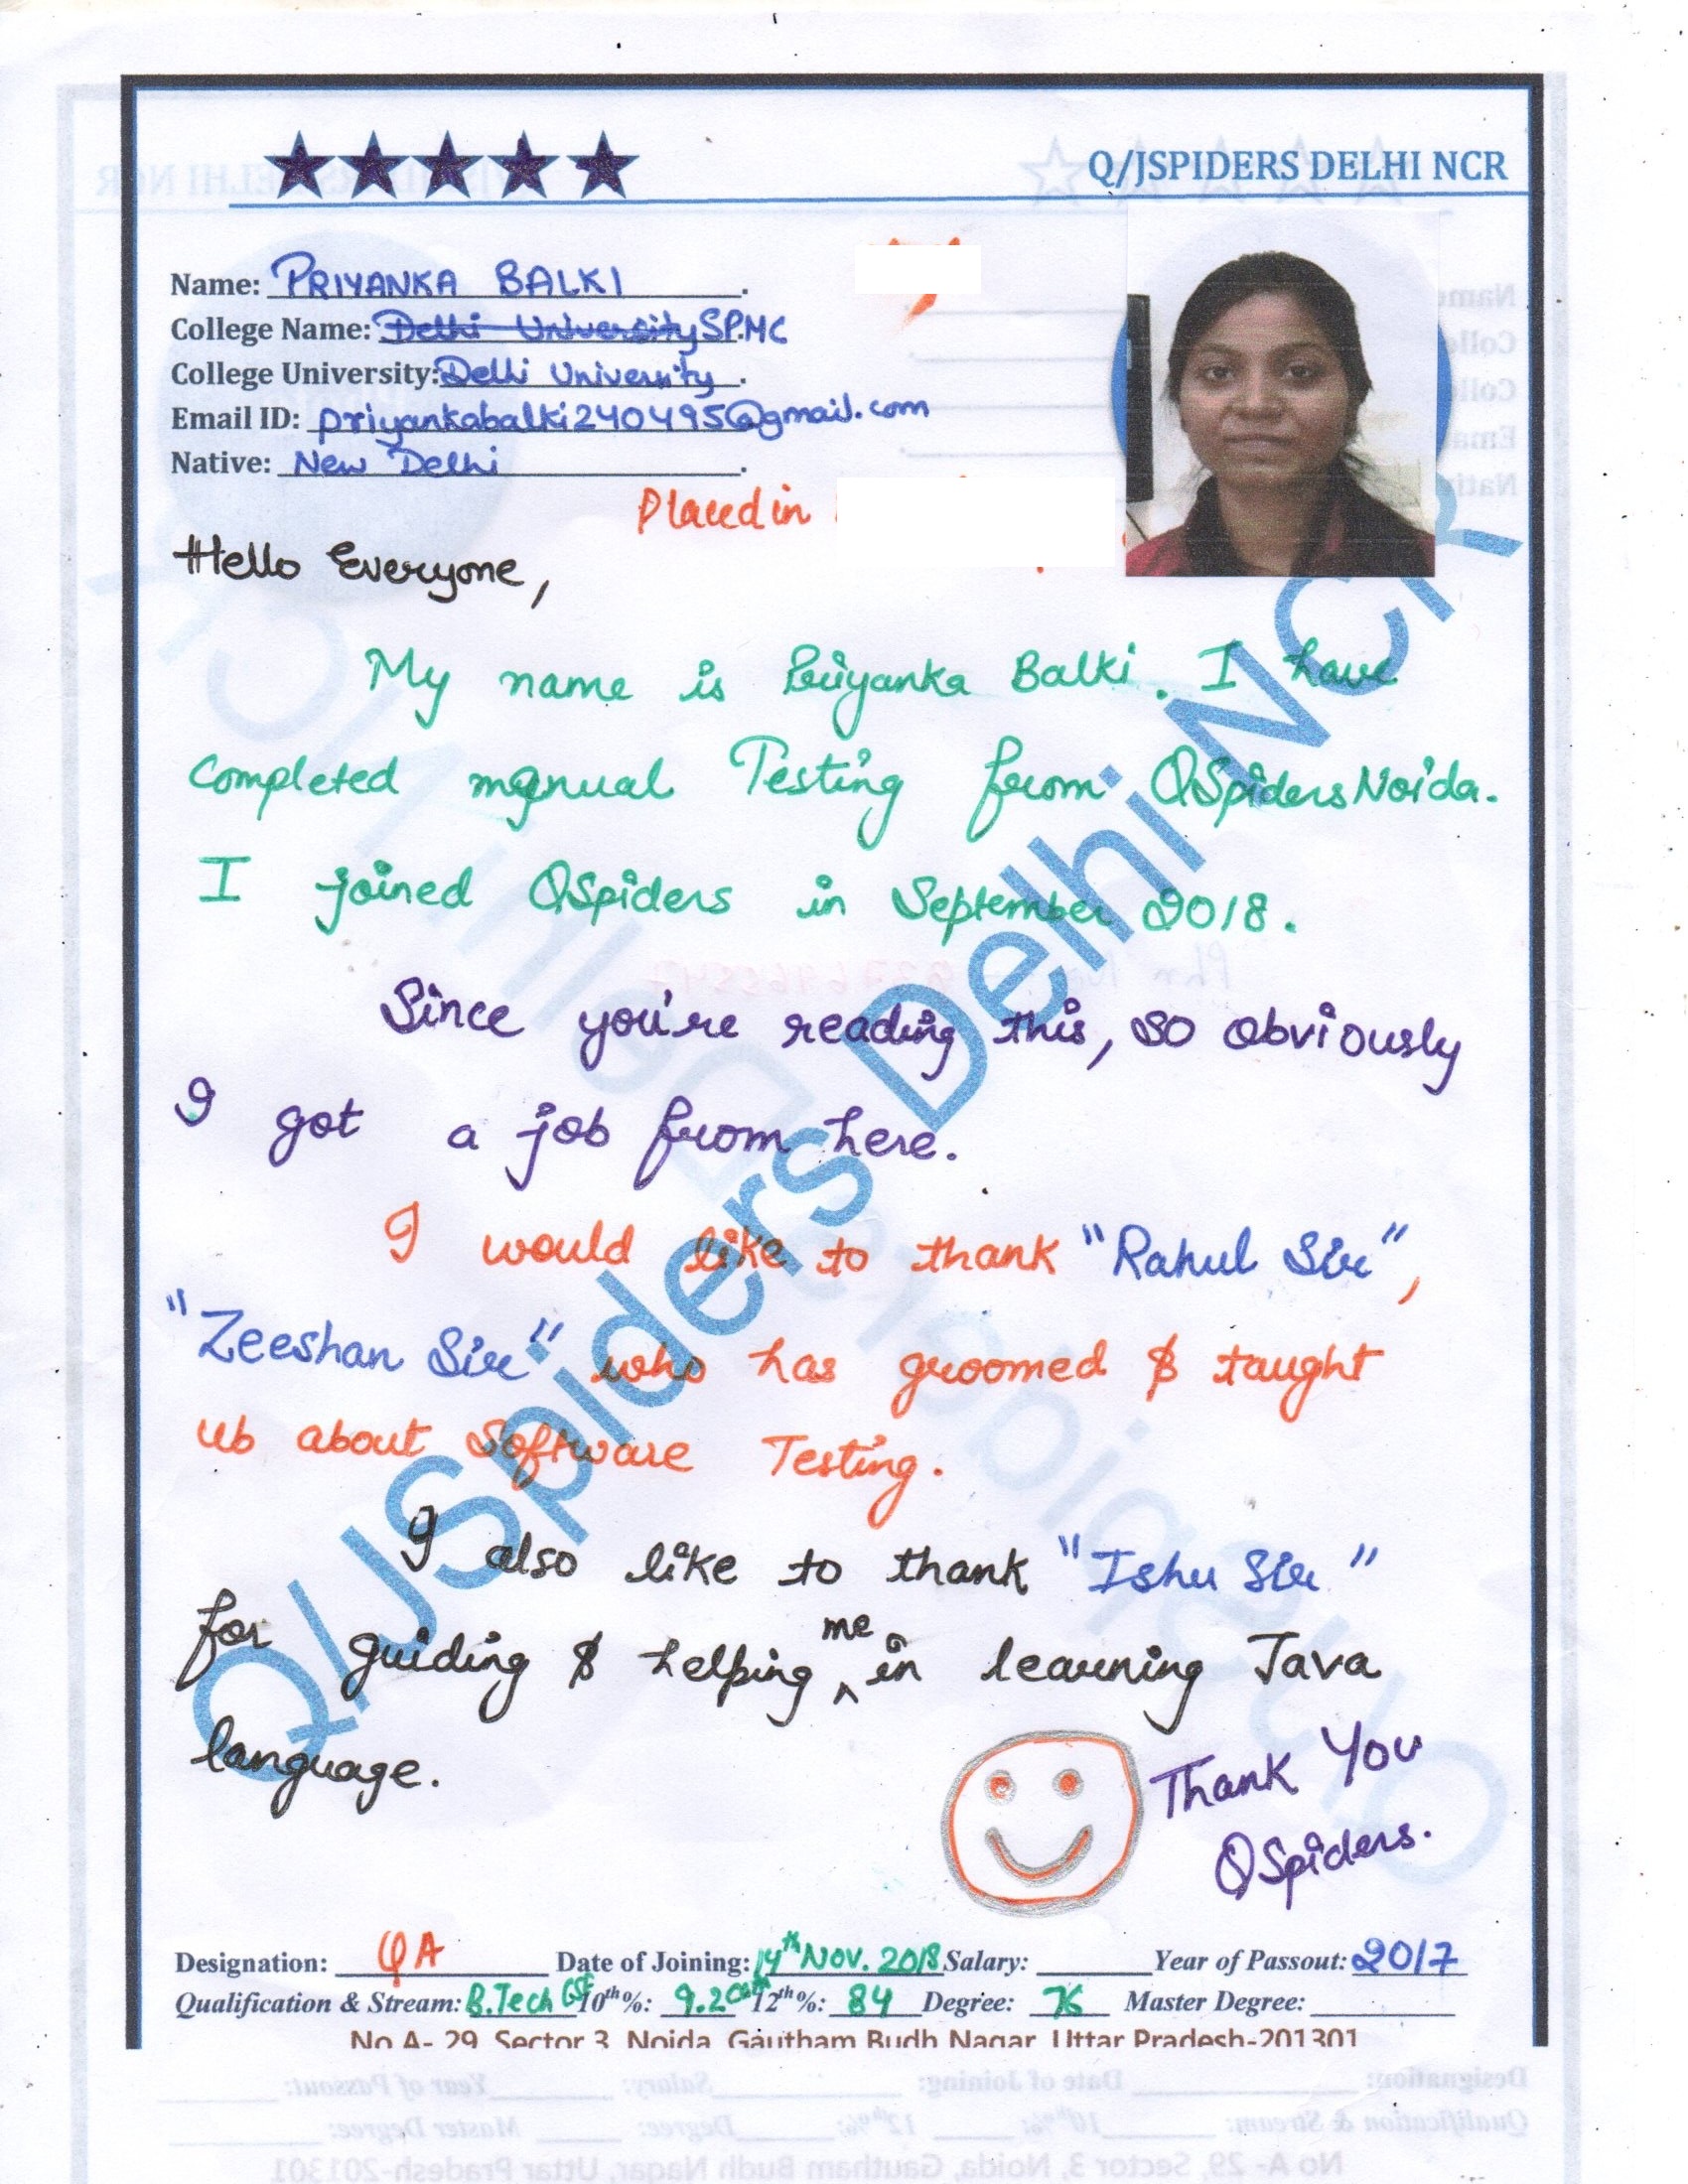 Q/JSPIDERS DELHI NCR
Name: PRIYANKA BALKI
College Name: Delhi University SPMC
College University: Delhi University
Email ID: priyankabalki240495@gmail.com
Native: New Delhi
Placed in
Hello Everyone,
My name is Priyanka Balki. I have
completed manual Testing from QSpiders Noida.
I joined QSpiders in September 2018.
Since you're reading this, so obviously
I got a job from here.
I would like to thank "Rahul Sir",
"Zeeshan Sir" who has groomed & taught
us about Software Testing.
I also like to thank "Ishu Sir"
for guiding & helping me in learning Java
language.
Thank You
QSpiders.
Q/JSpiders Delhi NCR
Designation: QA Date of Joining: 14th Nov. 2018 Salary: Year of Passout: 2017
Qualification & Stream: B.Tech 10th%: 9.2 12th%: 84 Degree: 76 Master Degree:
No A- 29, Sector 3, Noida, Gautham Budh Nagar, Uttar Pradesh-201301